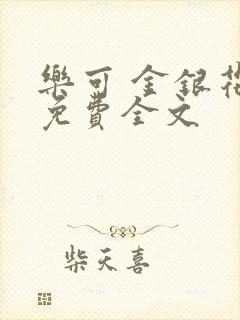 樂可 金銀花
免費全文
柴天喜